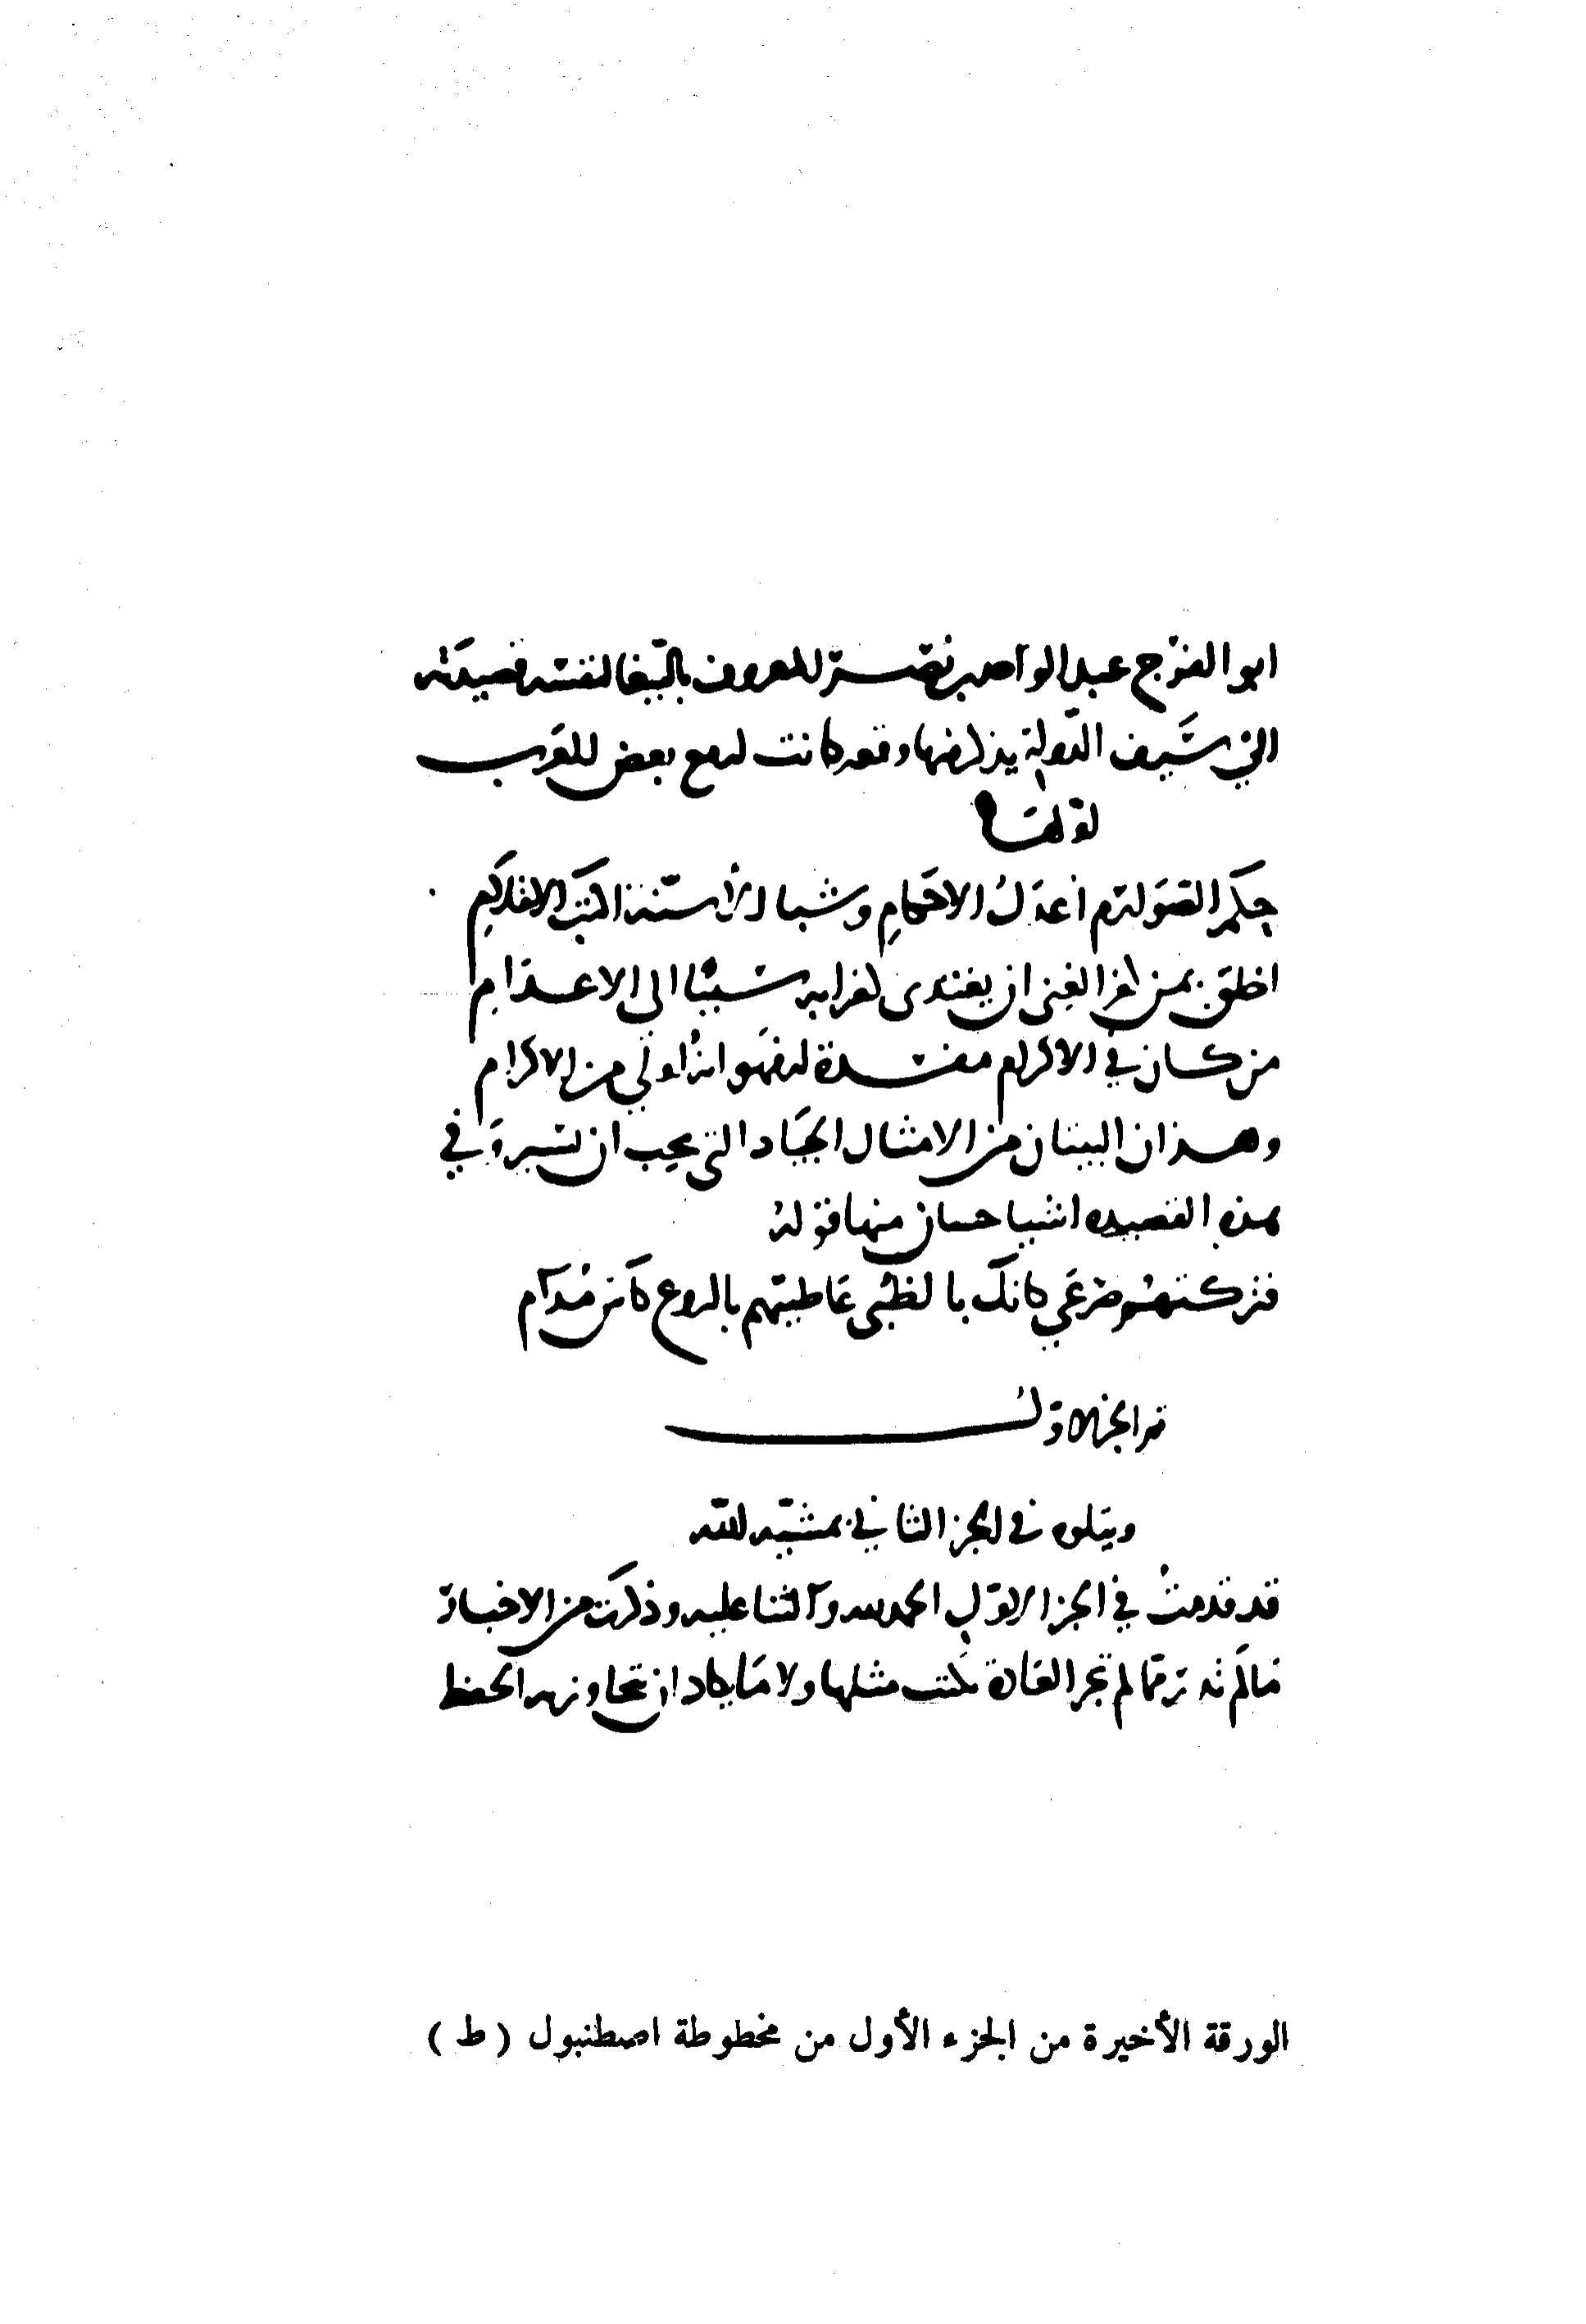 ابو الفرج عبد الواحد بن نصر المعروف بالببغا لنفسه قصيدته
الى سيف الدولة يذكر فيها وقعه كانت له مع بعض العرب
اولها
حكم الصوارم اعدل الاحكام وشبا الاسنة اكتب الاقلام
اخلق بمن كفر الغنى ان يغتدى كفرانه سببًا الى الاعدام
من كان في الاكرام مفسدة له فهوانه اولى من الاكرام
وهذان البيتان من الامثال الجياد التى يجب ان تسير وفي
هذه القصيده اشيا حسان منها قوله
فتركتهم صرعى كانك بالظبى عاطيتهم بالروع كاس مدام
تم الجز الاول
ويتلوه في الجز الثاني بمشيه الله
قد قدمت في الجز الاول الحمد لله والثنا عليه وذكرت من الاخبار
ما لم تجر العادة بكتب مثلها ولا ما يكاد ان يتجاوزه الحفظ
الورقة الأخيرة من الجزء الأول من مخطوطة اصطنبول ( ط )